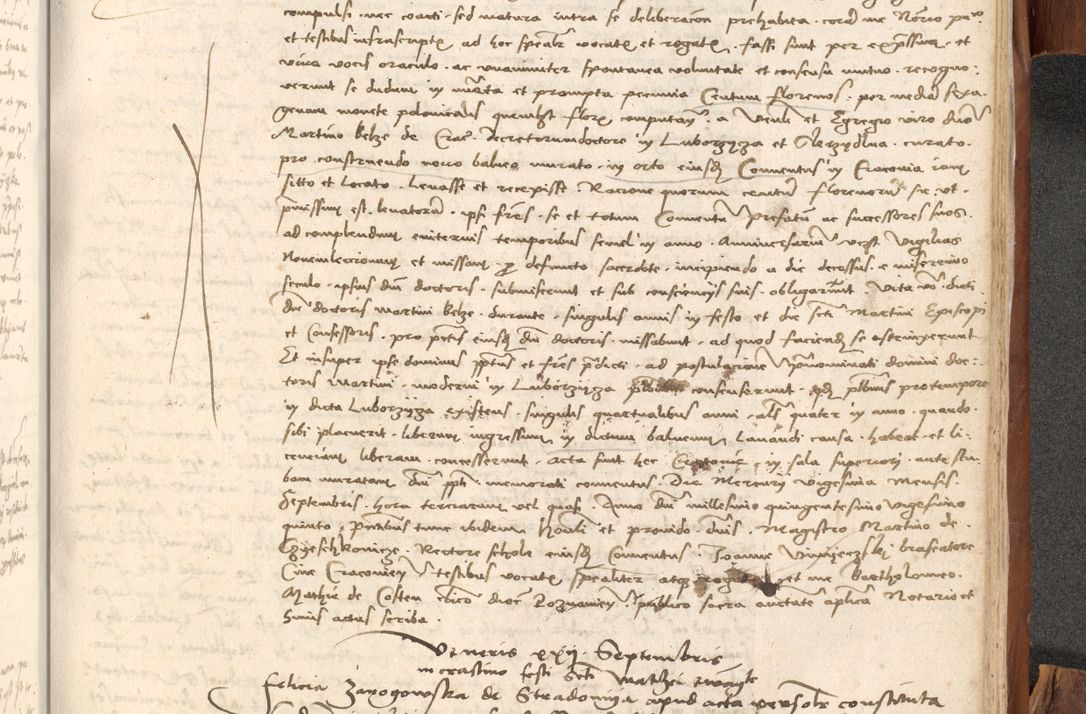 compulsi nec coacti sed matura intra se deliberacõn prehabita corã me Noẽrio pñ
et testibus infrascriptʒ ad hoc specałr vocatʒ et rogatʒ fassi sunt per exp̃ssum et
viva vocis oraculo ac unanimiter spontanea voluntate et consensu mutuo recogno
verunt se dudum in nũata et prompta pecunia Centum florenos per mediã sexa
genam monete polonicalis quemlibet florẽ computañ a Venłi et Egregio viro dño
Martino belze de Crac̃ decretorum doctore in Luborzycza et curato
pro construendo novo balneo murato in orto eiusdʒ Conventus in Craconia
sitto et locato levasse et recepisse Racione quorum centũ florenorũ sic ut
p̃missum est levatorũ ipse fr̃es se et totum Conventũ prefatũ ac successores suos
ad complendum eviternis temporibus semel in anno Anniversariũ vȝt Vigilias
Novemlectionum et missam p defuncto sacerdote incipiendo a die decessus e misserrimo
seculo ipsius dñi doctoris submiserunt et sub conscienciis suis obligarunt vita vo dicti
dñi doctoris martini belze durante singulis annis in festo et die scti Martini Episcopi
et Confessoris pro pctis eiusdʒ dñi doctoris missabunt ad quod faciendʒ se astrinxerunt
Et insuper ipse dominus pptus et fr̃es p̃dicti ad postulacione p̃nominati domini doc
toris martini moderni in Luborzycza consenserunt pltanis pro tempore
in dicta Luborzycza existens singulis quartualibus anni als quater in anno quando
sibi placuerit liberum ingressum in dictum balneum Lavandi causa habeat et li
cenciam liberam concesserunt acta sunt hec in sala superiori ante stu
bam muratam dñi ppti memorati conventus Die Mercurii vigesima Mensis
Septembris hora terciarum vel quasi Anno dñi millesimo quingentesimo vigesimo
quinto pñtibus tunc ibidem hõnłi et provido dñis Magistro Martino de
Rectore schole eiusdʒ Conventus Joanne braseatore
Cive Cracovieñ testibus vocatʒ specialiter atqʒ rogatʒ et me Bartholomeo
Mathie de Costen cłico dioc̃ Poznanieñ publico sacra auctate aplica Notario et
huius actus scriba
Veneris xxij Septembris
in crastino festi Scti Mathei
Felicia de Stradomya apud acta personałr constituta